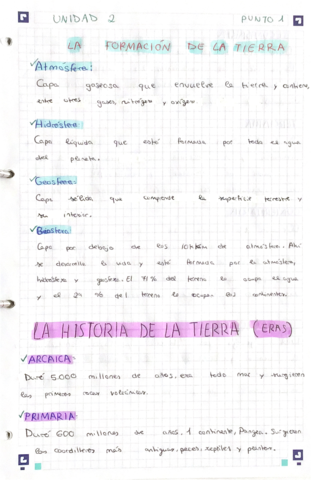 UNIDAD 2 PUNTO 1
LA FORMACIÓN DE LA TIERRA
Atmósfera:
Capa gaseosa que envuelve la tierra y contiene,
entre otros gases, nitrógeno y oxígeno
Hidrósfera:
Capa líquida que está formada por toda el agua
del planeta.
Geosfera:
Capa sólida que comprende la superficie terrestre y
su interior.
Biosfera:
Capa por debajo de los 10km de atmósfera. Ahí
se desarrolla la vida y está formada por la atmósfera,
hidrósfera y geosfera. El 71% del terreno lo ocupa el agua
y el 29% del terreno lo ocupan los continentes.
LA HISTORIA DE LA TIERRA (ERAS)
ARCAICA:
Duró 5.000 millones de años, era todo mar y surgieron
las primeras rocas volcánicas.
PRIMARIA:
Duró 600 millones de años. 1 continente, Pangea. Surgieron
las cordilleras más antiguas, peces, reptiles y plantas.